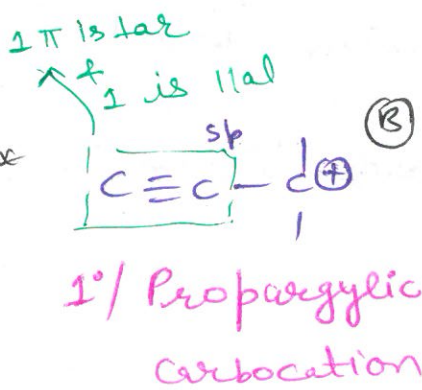 1 π is ⊥ar
&
1 is ||al
sp
(B)
C ≡ C - C ⊕
1°/ Propargylic
carbocation